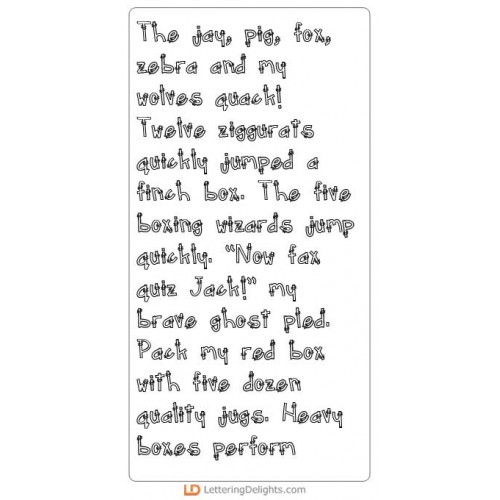 The jay, pig, fox,
zebra and my
wolves quack!
Twelve ziggurats
quickly jumped a
finch box. The five
boxing wizards jump
quickly. "Now fax
quiz Jack!" my
brave ghost pled.
Pack my red box
with five dozen
quality jugs. Heavy
boxes perform
LD LetteringDelights.com